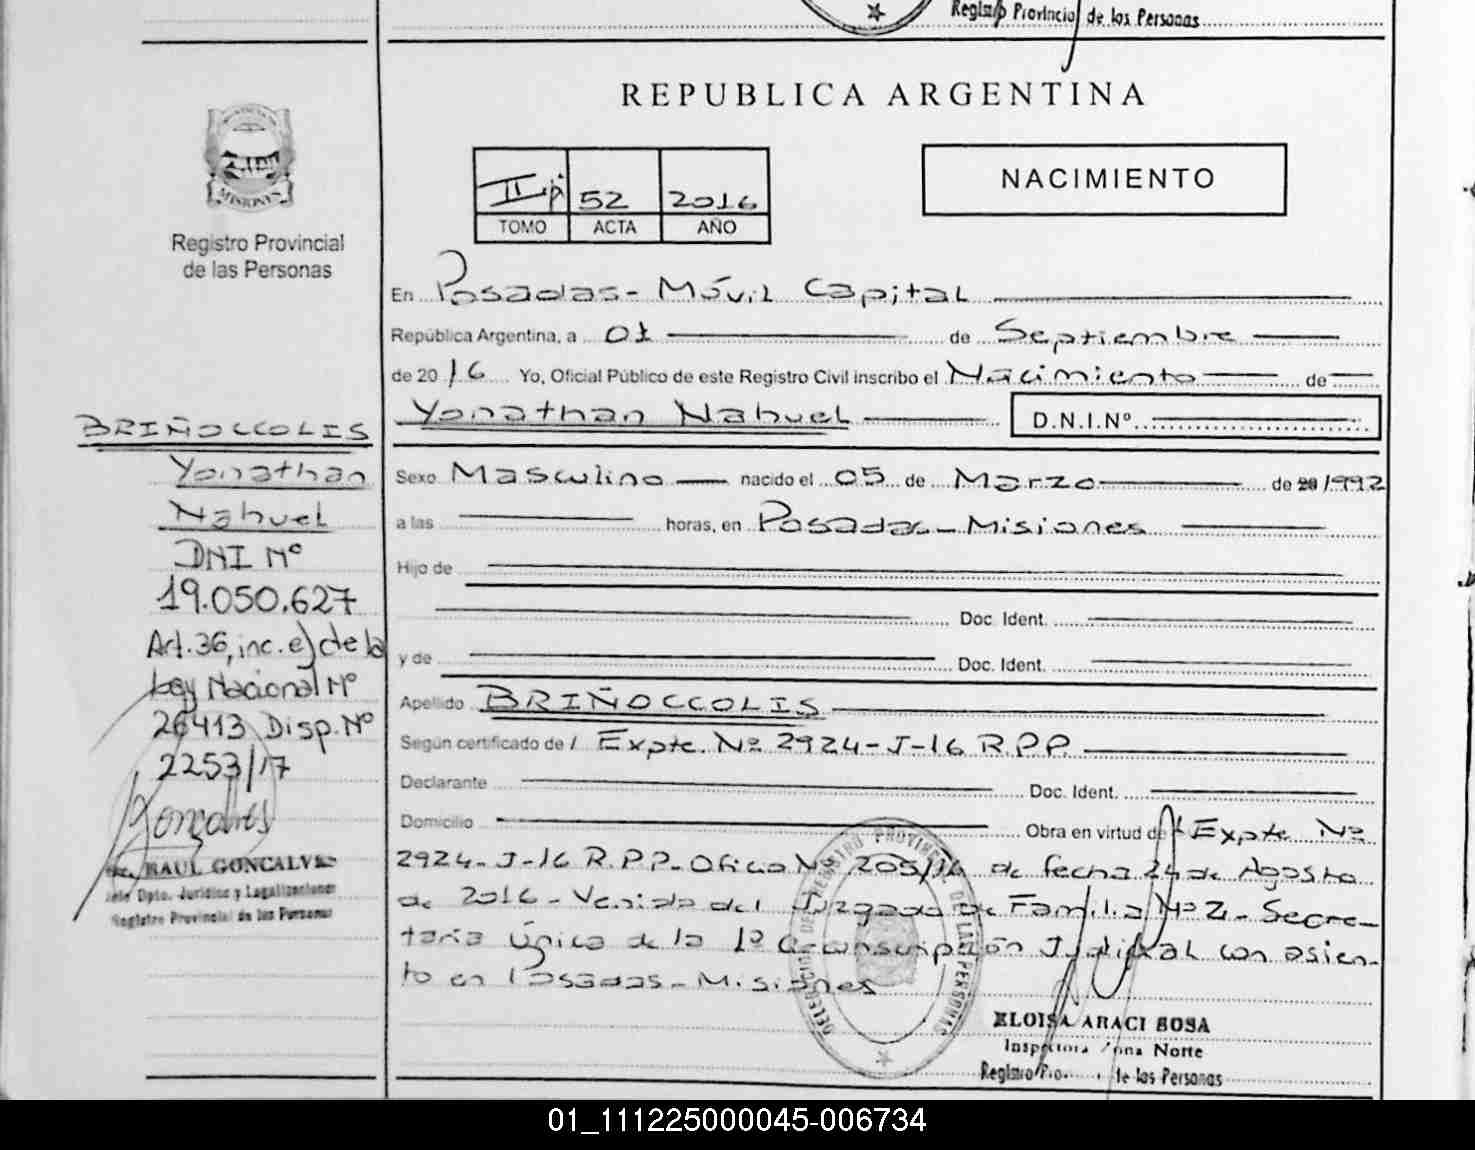 Registro Provincial de las Personas
REPUBLICA ARGENTINA
MISIONES
Registro Provincial
de las Personas
II 52 2016
TOMO ACTA AÑO
NACIMIENTO
En Posadas - Móvil Capital
República Argentina, a 01 de Septiembre
de 2016 Yo, Oficial Público de este Registro Civil inscribo el Nacimiento de
Yonathan Nahuel D.N.I.Nº
Sexo Masculino nacido el 05 de Marzo de 20 1992
a las horas, en Posadas - Misiones
Hijo de
Doc. Ident.
y de Doc. Ident.
Apellido BRIÑOCCOLIS
Según certificado de / Expte. Nº 2924-J-16 R.P.P.
Declarante Doc. Ident.
Domicilio Obra en virtud de Expte Nº
2924-J-16 R.P.P. Oficio Nº 205/16 de fecha 24 de Agosto
de 2016 - Venido del Juzgado de Familia Nº 2 - Secre-
taria Única de la 1º Circunscripción Judicial con asien-
to en Posadas - Misiones
DELEGACION DEL REGISTRO PROVINCIAL DE LAS PERSONAS
ELOISA ARACI SOSA
Inspectora Zona Norte
Registro Pro. de las Personas
BRIÑOCCOLIS
Yonathan
Nahuel
DNI Nº
19.050.627
Art. 36, inc. e) de la
Ley Nacional Nº
26413 Disp. Nº
2253/17
RAUL GONCALVES
Jefe Dpto. Jurídico y Legalizaciones
Registro Provincial de las Personas
01_111225000045-006734